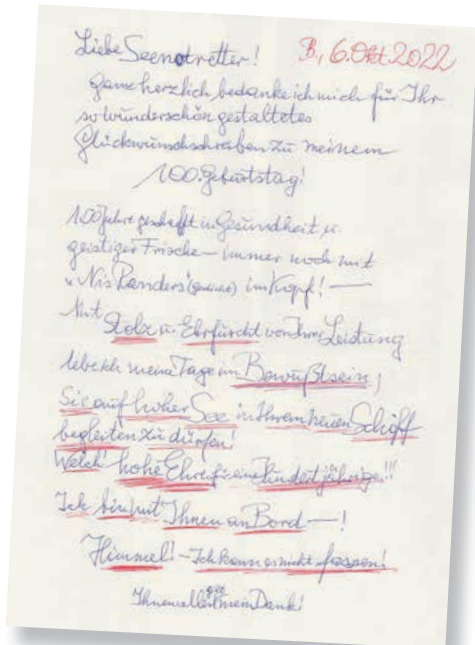 Liebe Seenotretter! B., 6. Okt. 2022
ganz herzlich bedanke ich mich für Ihr
so wunderschön gestaltetes
Glückwunschschreiben zu meinem
100. Geburtstag!
100 Jahre geschafft in Gesundheit u.
geistiger Frische – immer noch mit
"Nis Randers" im Kopf! —
Mit Stolz u. Ehrfurcht von Ihrer Leistung
lebe ich meine Tage im Bewußtsein,
Sie auf hoher See in Ihrem neuen Schiff
begleiten zu dürfen!
Welch' hohe Ehre für eine Hundertjährige!!!
Ich bin mit Ihnen an Bord —!
Himmel! – Ich kann es nicht fassen!
Ihnen allen mein Dank!